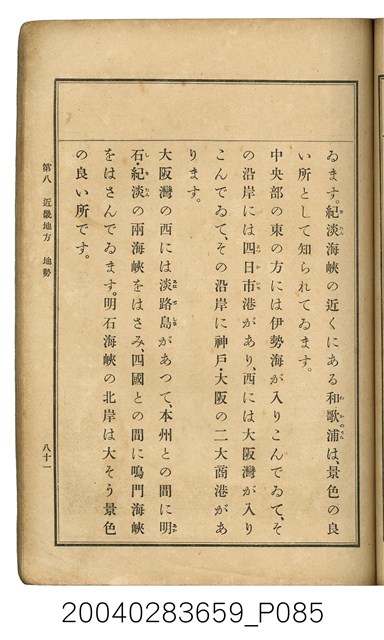 ゐます。紀淡海峡の近くにある和歌浦は、景色の良
い所として知られてゐます。
中央部の東の方には伊勢海が入りこんでゐて、そ
の沿岸には四日市港があり、西には大阪灣が入り
こんでゐて、その沿岸に神戸・大阪の二大商港があ
ります。
大阪灣の西には淡路島があつて、本州との間に明
石・紀淡の兩海峡をはさみ、四國との間に鳴門海峡
をはさんでゐます。明石海峡の北岸は大そう景色
の良い所です。
第八 近畿地方 地勢
八十一
20040283659_P085